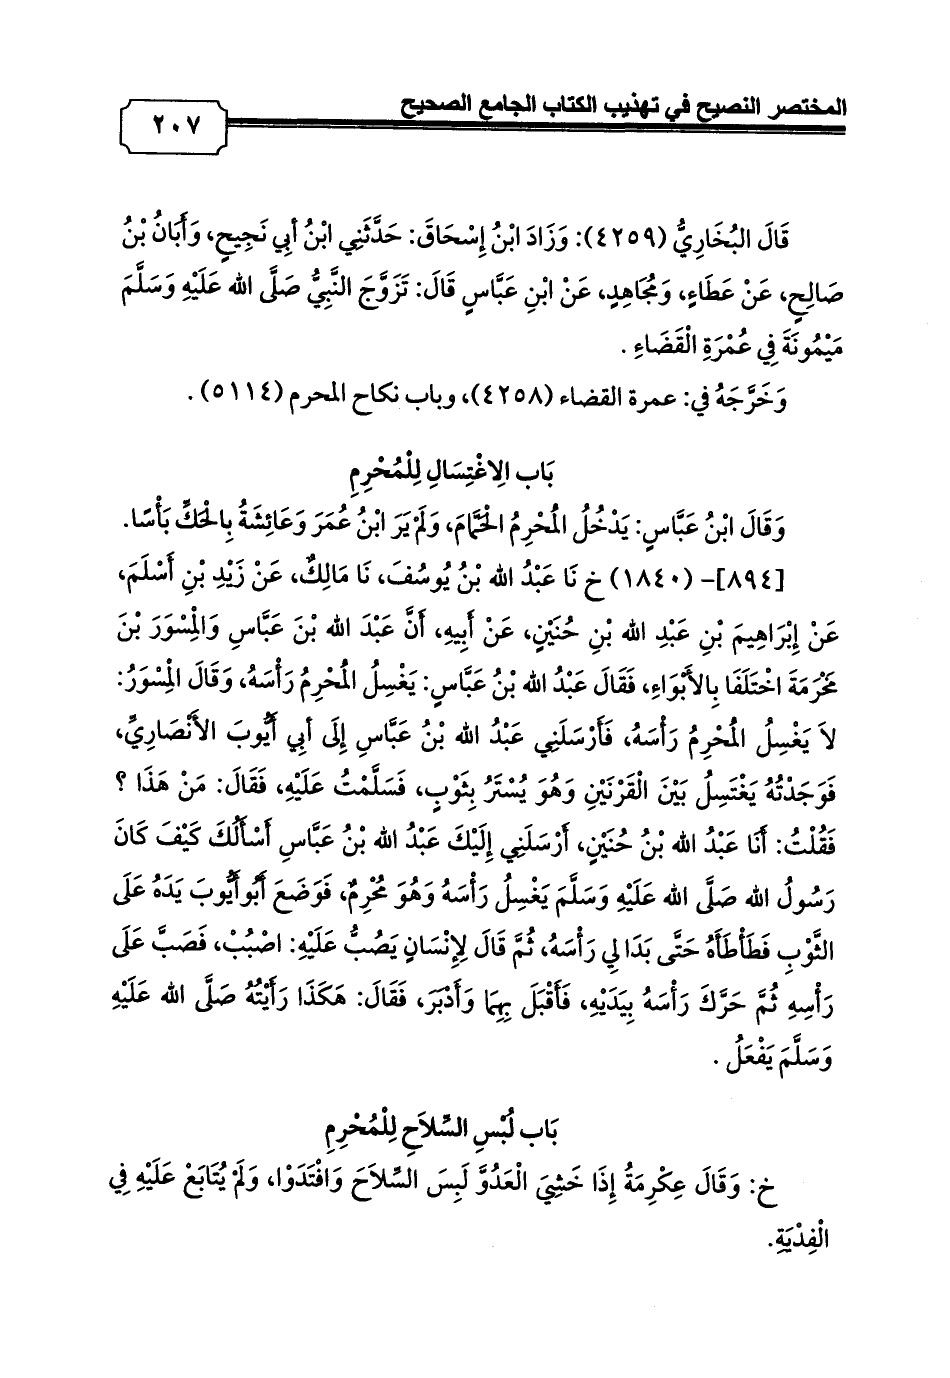 المختصر النصيح في تهذيب الكتاب الجامع الصحيح
٢٠٧
قَالَ البُخَارِيُّ (٤٢٥٩): وَزَادَ ابْنُ إِسْحَاقَ: حَدَّثَنِي ابْنُ أبِي نَجِيحٍ، وَأَبَانُ بْنُ
صَالِحٍ، عَنْ عَطَاءٍ، وَمُجَاهِدٍ، عَنْ ابْنِ عَبَّاسٍ قَالَ: تَزَوَّجَ النَّبِيُّ صَلَّى الله عَلَيْهِ وَسَلَّمَ
مَيْمُونَةَ فِي عُمْرَةِ الْقَضَاءِ .
وَخَرَّجَهُ في: عمرة القضاء (٤٢٥٨)، وباب نكاح المحرم (٥١١٤) .
بَاب الِاغْتِسَالِ لِلْمُحْرِمِ
وَقَالَ ابْنُ عَبَّاسٍ: يَدْخُلُ المُحْرِمُ الحَمَّامَ، وَلَمْ يَرَ ابْنُ عُمَرَ وَعَائِشَةُ بِالْحَكِّ بَأْسًا.
[٨٩٤]- (١٨٤٠) خ نَا عَبْدُ الله بْنُ يُوسُفَ، نَا مَالِكٌ، عَنْ زَيْدِ بْنِ أَسْلَمَ،
عَنْ إِبْرَاهِيمَ بْنِ عَبْدِ الله بْنِ حُنَيْنٍ، عَنْ أَبِيهِ، أَنَّ عَبْدَ الله بْنَ عَبَّاسٍ وَالْمِسْوَرَ بْنَ
مَخْرَمَةَ اخْتَلَفَا بِالأَبْوَاءِ، فَقَالَ عَبْدُ الله بْنُ عَبَّاسٍ: يَغْسِلُ المُحْرِمُ رَأْسَهُ، وَقَالَ الْمِسْوَرُ:
لاَ يَغْسِلُ المُحْرِمُ رَأْسَهُ، فَأَرْسَلَنِي عَبْدُ الله بْنُ عَبَّاسٍ إِلَى أَبِي أَيُّوبَ الأَنْصَارِيِّ،
فَوَجَدْتُهُ يَغْتَسِلُ بَيْنَ الْقَرْنَيْنِ وَهُوَ يُسْتَرُ بِثَوْبٍ، فَسَلَّمْتُ عَلَيْهِ، فَقَالَ: مَنْ هَذَا ؟
فَقُلْتُ: أَنَا عَبْدُ الله بْنُ حُنَيْنٍ، أَرْسَلَنِي إِلَيْكَ عَبْدُ الله بْنُ عَبَّاسٍ أَسْأَلُكَ كَيْفَ كَانَ
رَسُولُ الله صَلَّى الله عَلَيْهِ وَسَلَّمَ يَغْسِلُ رَأْسَهُ وَهُوَ مُحْرِمٌ، فَوَضَعَ أَبُو أَيُّوبَ يَدَهُ عَلَى
الثَّوْبِ فَطَأْطَأَهُ حَتَّى بَدَا لِي رَأْسَهُ، ثُمَّ قَالَ لِإِنْسَانٍ يَصُبُّ عَلَيْهِ: اصْبُبْ، فَصَبَّ عَلَى
رَأْسِهِ ثُمَّ حَرَّكَ رَأْسَهُ بِيَدَيْهِ، فَأَقْبَلَ بِهِمَا وَأَدْبَرَ، فَقَالَ: هَكَذَا رَأَيْتُهُ صَلَّى الله عَلَيْهِ
وَسَلَّمَ يَفْعَلُ .
بَاب لُبْسِ السِّلاَحِ لِلْمُحْرِمِ
خ: وَقَالَ عِكْرِمَةُ إِذَا خَشِيَ الْعَدُوَّ لَبِسَ السِّلاَحَ وَافْتَدَوْا، وَلَمْ يُتَابَعْ عَلَيْهِ فِي
الْفِدْيَةِ.